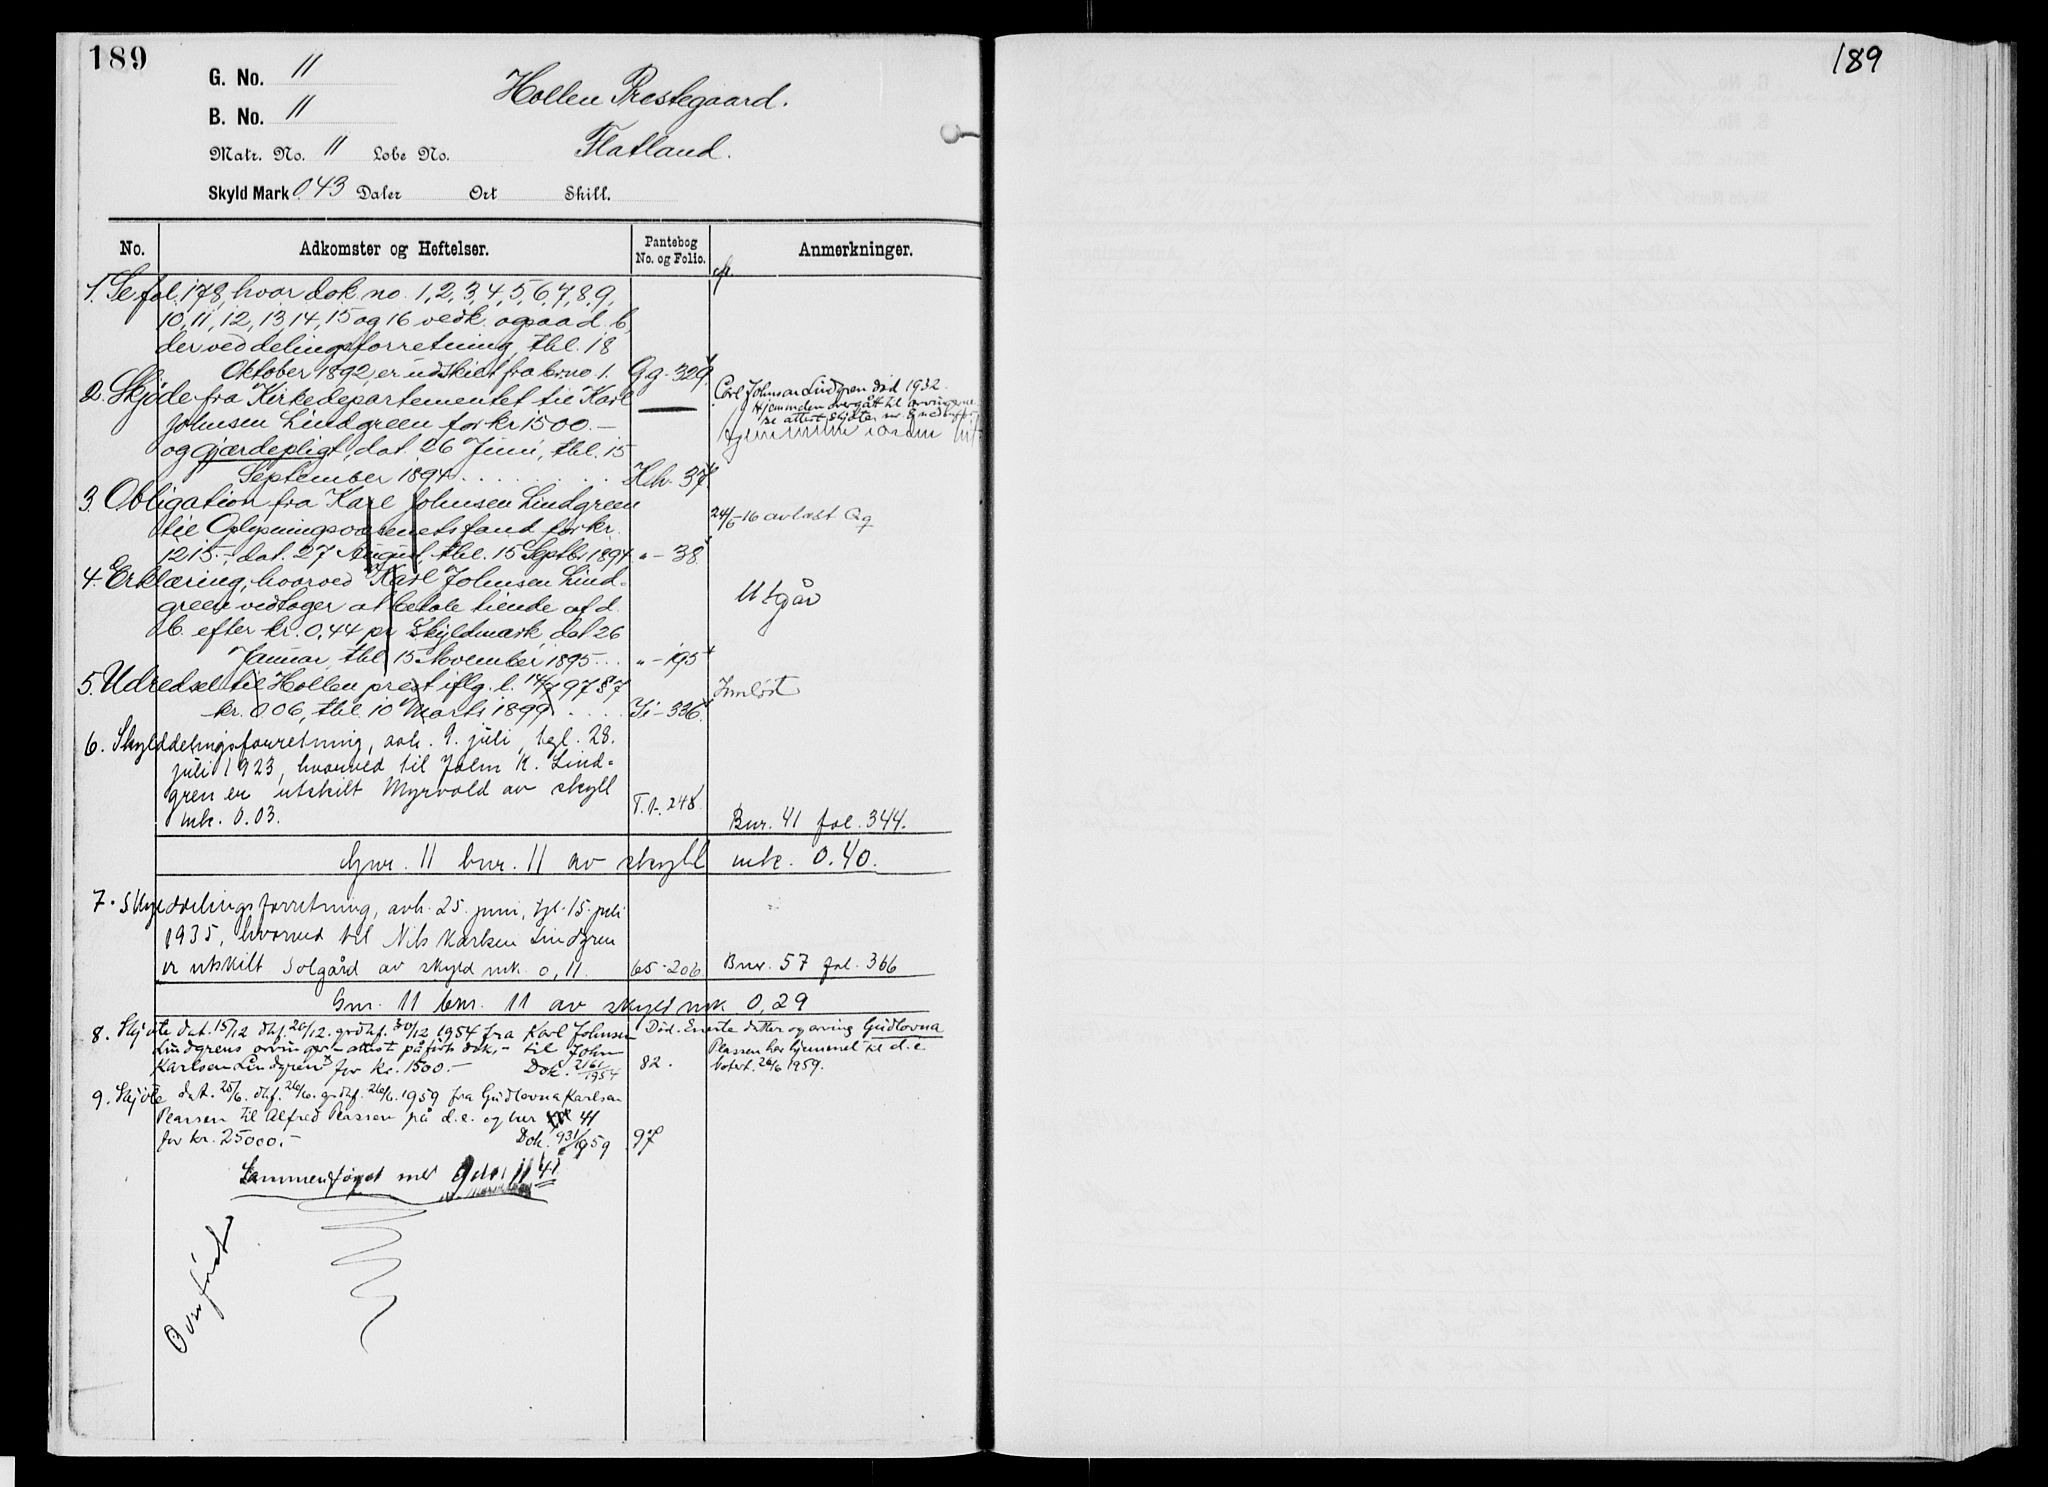 189
G. No. 11
Hollen Prestegaard.
B. No. 11
Matr. No. 11 Løbe No.
Flatland.
Skyld Mark 0.43 Daler Ort Skill.
No. Adkomster og Heftelser. Pantebog No. og Folio. Anmerkninger.
1. Se fol. 178, hvor dok. no. 1, 2, 3, 4, 5, 6, 7, 8, 9,
10, 11, 12, 13, 14, 15 og 16 vedk. ogsaa d. b,
der ved delingsforretning, thl. 18
Oktober 1892, er udskilt fra br.no 1. Gg - 329.
2. Skjøde fra Kirkedepartementet til Karl
Johnsen Lindgreen for kr 1500.—
og gjærdepligt, dat. 26 Juni, thl. 15
September 1894 Hh. 37
Carl Johnsen Lindgren død 1932.
Hjemmelen overgått til arvingene
se attest skjøte nr. 8 nedenfor
3. Obligation fra Karl Johnsen Lindgreen
til Oplysningsvæsenets fond for kr.
1215.-, dat. 27 August, thl. 15 Septbr 1894. " - 38.
24/5-16 avlæst Qq
4. Erklæring, hvorved Karl Johnsen Lind=
green vedtager at betale tiende af d.
b. efter kr. 0.44 pr. Skyldmark, dat 26
Januar, thl. 15 November 1895... " - 195
Utgår
5. Udredsel til Hollen prest iflg. l. 14/7 97 § 7
kr. 0.06, thl. 10 Marts 1899. Ii - 336.
Innløst
6. Skylddelingsforretning, avh. 9. juli, tgl. 28.
juli 1923, hvorved til John K. Lind=
gren er utskilt Myrvold av skyll
mk. 0.03. T.t. 248. Bnr. 41 fol. 344.
Gnr. 11 bnr. 11 av skyll mk. 0.40.
7. Skylddelingsforretning, avh. 25. juni, tgl. 15. juli
1935, hvorved til Nils Karlsen Lindgren
er utskilt Solgård av skyld mk. 0,11. 65-206. Bnr. 57 fol. 366
Gnr. 11 bnr. 11 av skyld mk 0,29
8. Skjøte dat. 15/12 dhf. 20/12. grdhf. 30/12 1954 fra Karl Johnsen
Lindgrens arvinger - attest påført dok. - til John
Karlsen Lindgren x for kr. 1500.- Dok. 2161/1954 82.
Død. Eneste datter og arving Gudlovna
Plassen har hjemmel til d.e.
Notert. 26/6 1959.
9. Skjøte dat. 25/6. dhf. 26/6. grdhf. 26/6. 1959 fra Gudlovna Karlsen
Plassen til Alfred Plassen på d.e. og bnr 41
for kr. 25000.- Dok. 931/1959 97
Sammenføyet med gnr. 11 41
Overført
189